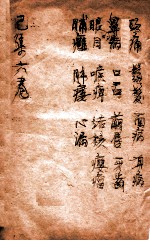 頭痛 鬚髮 面病 耳病
鼻病 口舌 繭唇 牙齒
眼目 喉痺 結核 癭瘤
肺癰 肺痿 心漏
巳集六卷